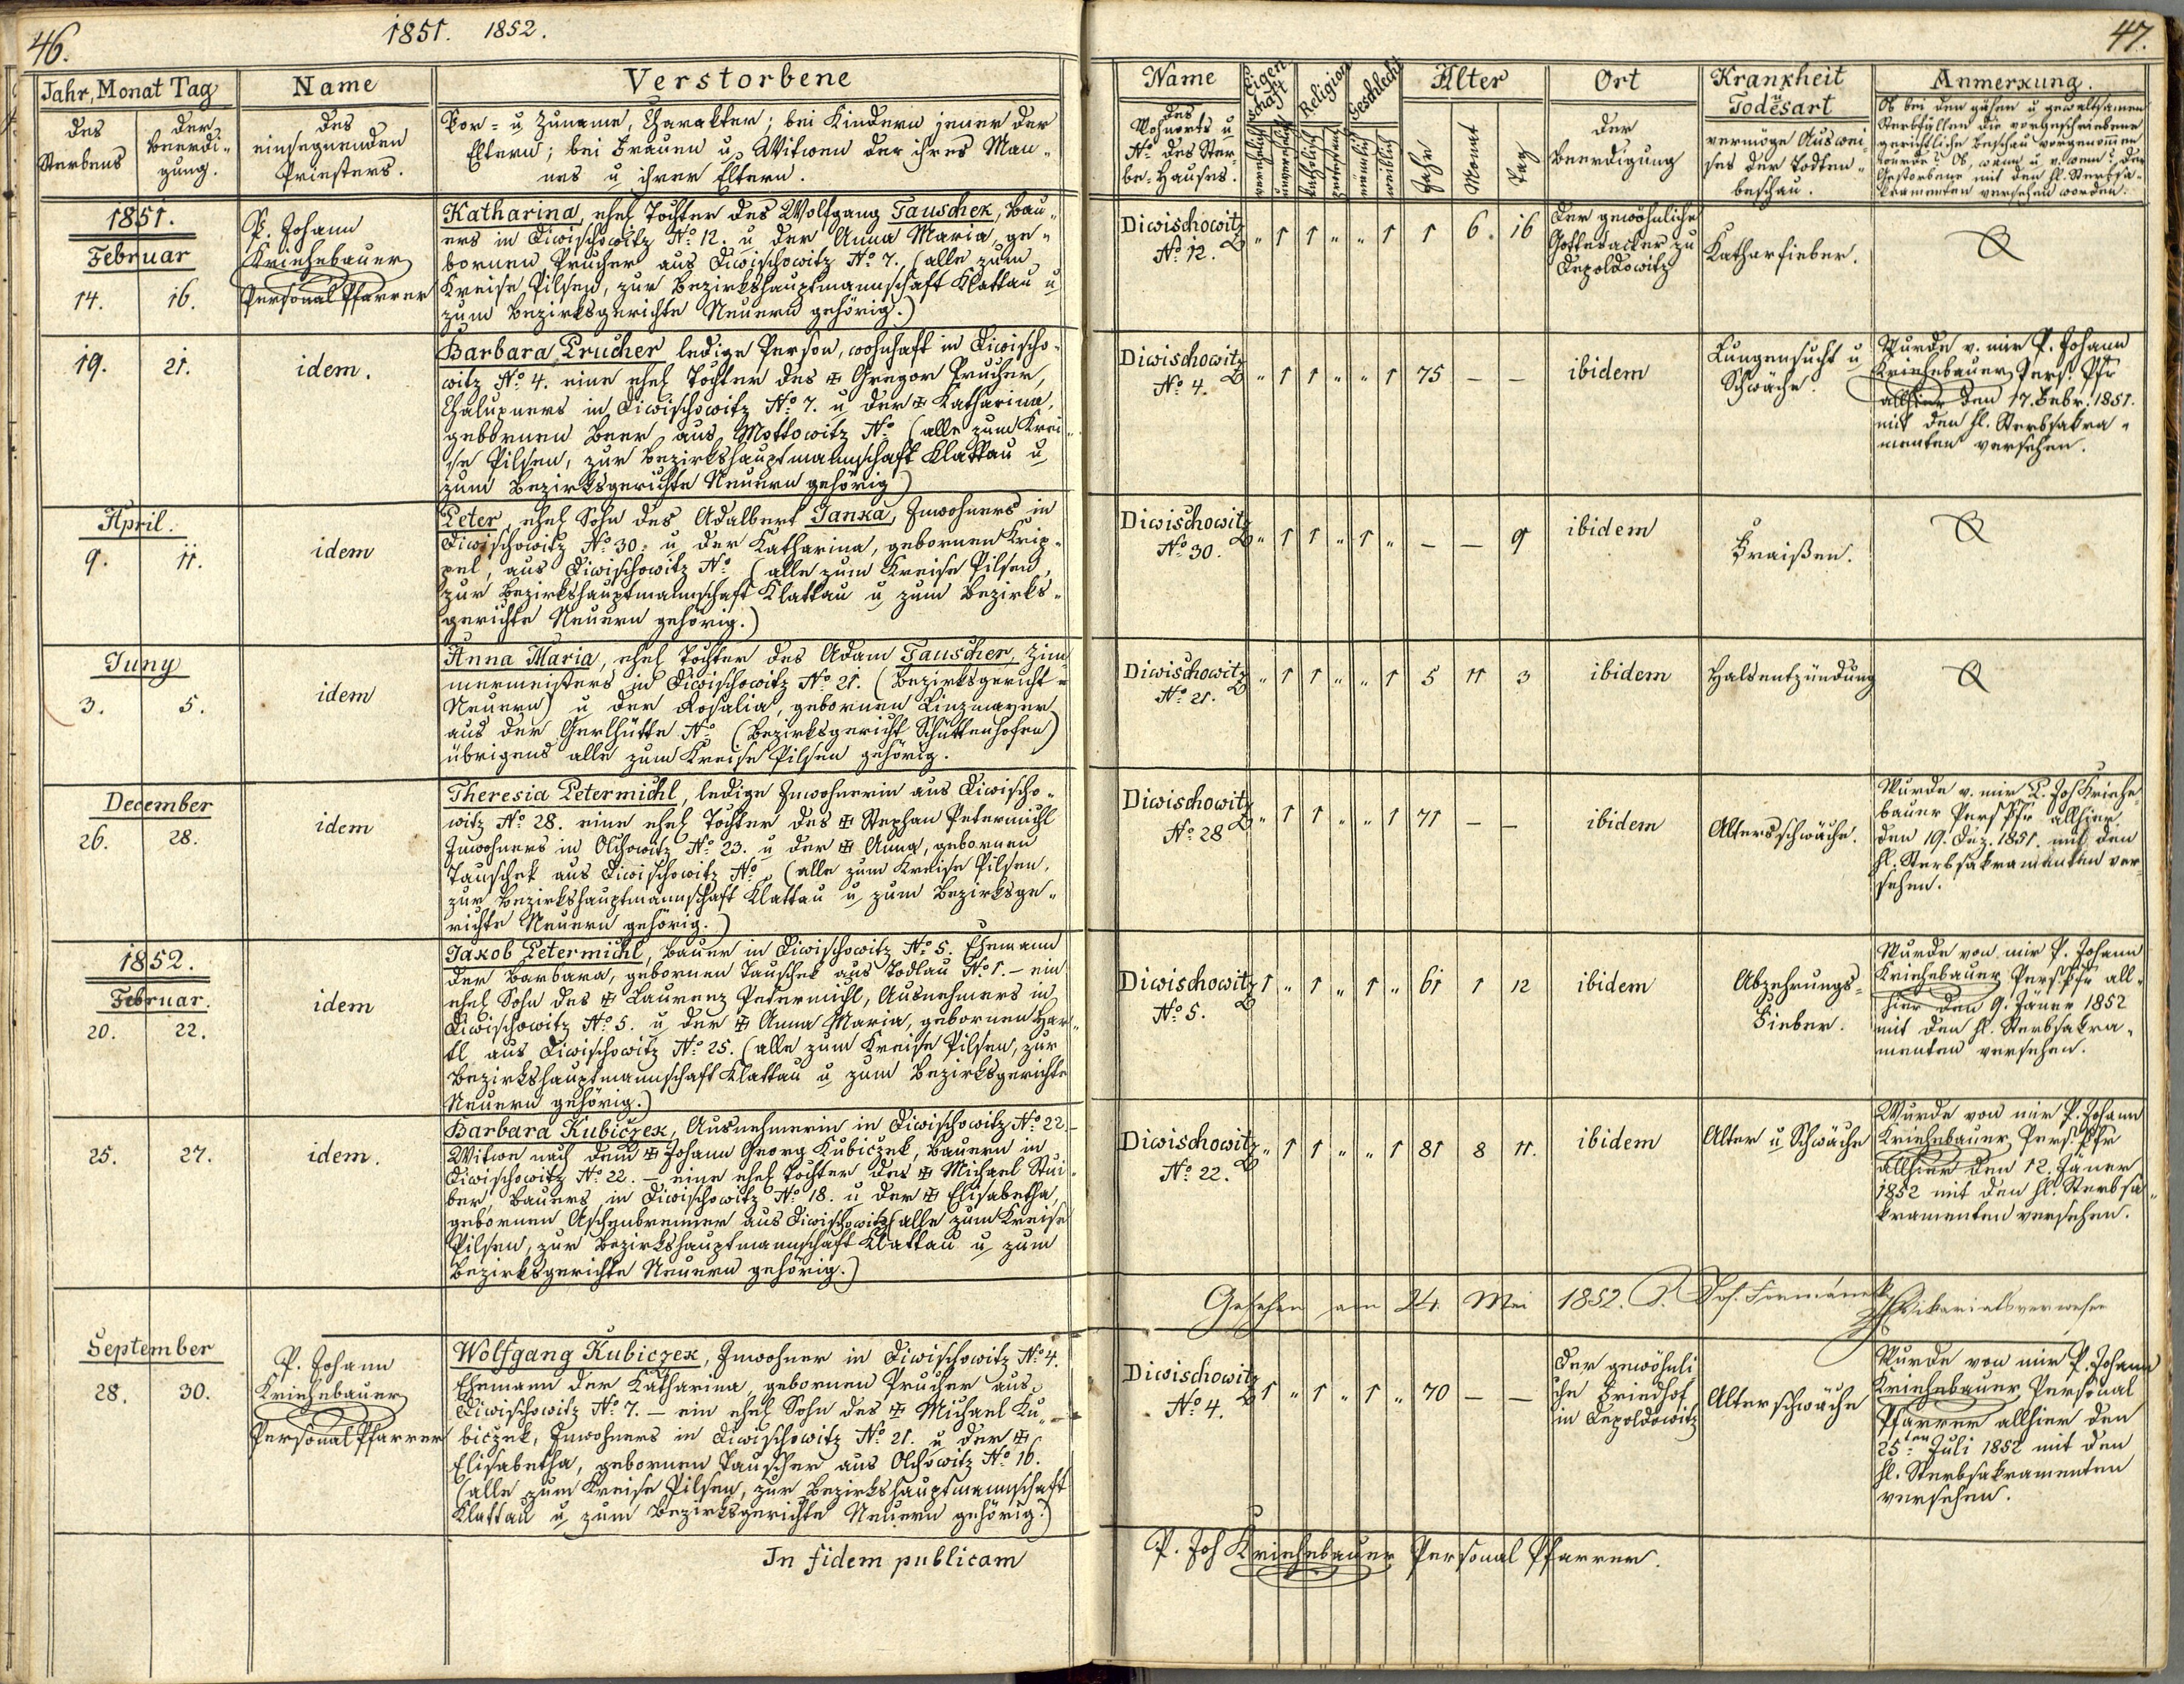 46.
1851. 1852.
Jahr, Monat Tag
des Sterbens
der Beerdi-
gung.
Name
des
einsegnenden
Priesters.
Verstorbene
Vor- u Zuname, Charakter; bei Kindern jener der
Eltern; bei Frauen u Witwen der ihres Man-
nes u ihrer Eltern.
1851.
Februar
14. 16.
P. Johann
Kriehebauer
Personal Pfarrer
Katharina, ehel Tochter des Wolfgang Tauschek, Bau-
ers in Diwischowitz No 12. u der Anna Maria, ge-
bornen Prucher aus Diwischowitz No 7. (alle zum
Kreise Pilsen, zur Bezirkshauptmannschaft Klattau u
zum Bezirksgerichte Neuern gehörig.)
19. 21.
idem.
Barbara Prucher ledige Person, wohnhaft in Diwischo-
witz No 4. eine ehel Tochter des ✠ Gregor Prucher,
Chalupners in Diwischowitz No 7. u der ✠ Katharina,
gebornen Beer aus Mottowitz No (alle zum Krei-
se Pilsen, zur Bezirkshauptmannschaft Klattau u
zum Bezirksgerichte Neuern gehörig)
April.
9. 11.
idem
Peter, ehel Sohn des Adalbert Janka, Inwohners in
Diwischowitz No 30. u der Katharina, gebornen Krip-
pel, aus Diwischowitz No (alle zum Kreise Pilsen,
zur Bezirkshauptmannschaft Klattau u zum Bezirks-
gerichte Neuern gehörig.)
Juny
3. 5.
idem
Anna Maria, ehel Tochter des Adam Tauscher, Zim-
mermeisters in Diwischowitz No 21. (Bezirksgericht
Neuern) u der Rosalia, gebornen Linzmayer
aus der Gerlhütte No (Bezirksgericht Schüttenhofen)
übrigens alle zum Kreise Pilsen gehörig.
December
26. 28.
idem
Theresia Petermichl, ledige Inwohnerin aus Diwischo-
witz No 28. eine ehel Tochter des ✠ Stephan Petermichl
Inwohners in Olchowitz No 23. u der ✠ Anna, gebornen
Tauschek aus Diwischowitz No (alle zum Kreise Pilsen,
zur Bezirkshauptmannschaft Klattau u zum Bezirksge-
richte Neuern gehörig.)
1852.
Februar.
20. 22.
idem
Jakob Petermichl, Bauer in Diwischowitz No 5. Ehemann
der Barbara, gebornen Tauschek aus Todlau No 1. – ein
ehel Sohn des ✠ Laurenz Petermichl, Ausnehmers in
Diwischowitz No 5. u der ✠ Anna Maria, gebornen Har-
tl aus Diwischowitz No 25. (alle zum Kreise Pilsen, zur
Bezirkshauptmannschaft Klattau u zum Bezirksgerichte
Neuern gehörig.)
25. 27.
idem.
Barbara Kubiczek, Ausnehmerin in Diwischowitz No 22.–
Witwe nach dem ✠ Johann Georg Kubiczek, Bauern in
Diwischowitz No 22. – eine ehel Tochter des ✠ Michael Stui-
ber, Bauers in Diwischowitz No 18. u der ✠ Elisabetha,
gebornen Aschenbrenner aus Diwischowitz (alle zum Kreise
Pilsen, zur Bezirkshauptmannschaft Klattau u zum
Bezirksgerichte Neuern gehörig.)
September
28. 30.
P. Johann
Kriehebauer
Personal Pfarrer
Wolfgang Kubiczek, Inwohner in Diwischowitz No 4.
Ehemann der Katharina, gebornen Prucher aus
Diwischowitz No 7. – ein ehel Sohn des ✠ Michael Ku-
biczek, Inwohners in Diwischowitz No 21. u der ✠
Elisabetha, gebornen Tauscher aus Olchowitz No 16.
(alle zum Kreise Pilsen, zur Bezirkshauptmannschaft
Klattau u zum Bezirksgerichte Neuern gehörig.)
In fidem publicam
47.
Name
des
Wohnorts u
No des Ster-
be-Hauses.
Eigen
schaft
Religion
Geschlecht
männlich
weiblich
Alter
Jahr
Monat
Tag
Ort
der
Beerdigung
Krankheit
u
Todesart
vermöge Auswei-
ses der Todten-
beschau.
Anmerkung.
Ob bei den gähen u gewaltsamen
Sterbfällen die vorgeschriebene
gerichtliche Beschau vorgenommen
wurde? Ob, wann u v. wem? der
Gestorbene mit den hl. Sterbsa-
kramenten versehen worden.
Diwischowitz
No 12.
" 1 1 " " 1 1 6. 16
der gewöhnliche
Gottesacker zu
Depoldowitz
Katharfieber.
Diwischowitz
No 4.
" 1 1 " " 1 75 – –
ibidem
Lungensucht u
Schwäche.
Wurde v. mir P. Johann
Kriehebauer Pers. Pfr
allhier den 17. Febr. 1851.
mit den hl. Sterbsakra-
menten versehen.
Diwischowitz
No 30.
" 1 1 " 1 " – – 9
ibidem
Fraißen.
Diwischowitz
No 21.
" 1 1 " " 1 5 11 3
ibidem
Halsentzündung
Diwischowitz
No 28
" 1 1 " " 1 71 – –
ibidem
Altersschwäche.
Wurde v. mir P. Joh Kriehe-
bauer Pers Pfr allhier
den 19. Dez. 1851. mit den
hl. Sterbsakramenten ver-
sehen.
Diwischowitz
No 5.
1 " 1 " 1 " 61 1 12
ibidem
Abzehrungs-
Fieber.
Wurde von mir P. Johann
Kriehebauer Pers Pfr all-
hier den 9. Jäner 1852
mit den hl. Sterbsakra-
menten versehen.
Diwischowitz
No 22.
" 1 1 " " 1 81 8 11.
ibidem
Alter u Schwäche
Wurde von mir P. Johann
Kriehebauer Pers. Pfr
allhier den 12. Jäner
1852 mit den hl. Sterbsa-
kramenten versehen.
Gesehen am 24. Mai 1852. P. Jos. Formánek
Vikariatsverweser
Diwischowitz
No 4.
1 " 1 " 1 " 70 – –
der gewöhnli
che Friedhof
in Depoldowitz
Alterschwäche
Wurde von mir P. Johann
Kriehebauer Personal
Pfarrer allhier den
25.ten Juli 1852 mit den
hl. Sterbsakramenten
versehen.
P. Joh Kriehebauer Personal Pfarrer.